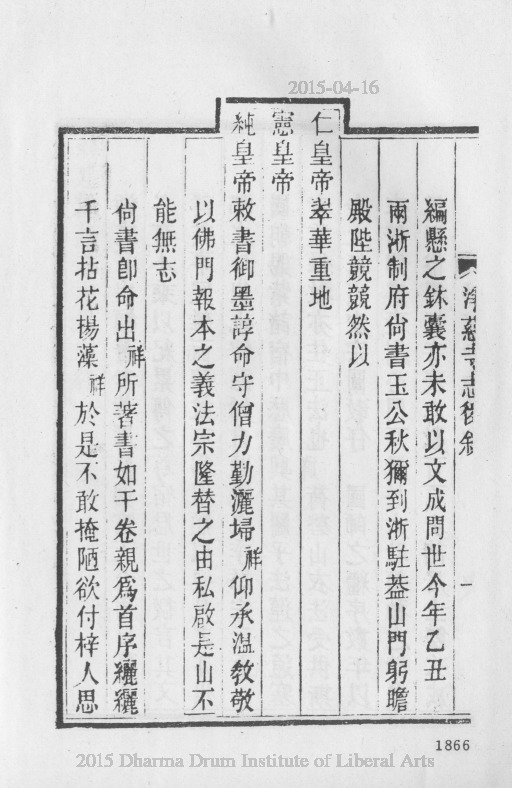 2015-04-16
淨慈寺志後叙 一
編懸之鉢囊亦未敢以文成問世今年乙丑
兩淅制府尙書玉公秋獮到淅駐葢山門躬瞻
殿陛競競然以
仁皇帝翠華重地
憲皇帝
純皇帝敕書御墨諄命守僧力勤灑埽祥仰承温敎敬
以佛門報本之義法宗隆替之由私啟是山不
能無志
尙書卽命出祥所著書如干卷親爲首序纚纚
千言拈花楊藻祥於是不敢掩陋欲付梓人思
1866
2015 Dharma Drum Institute of Liberal Arts